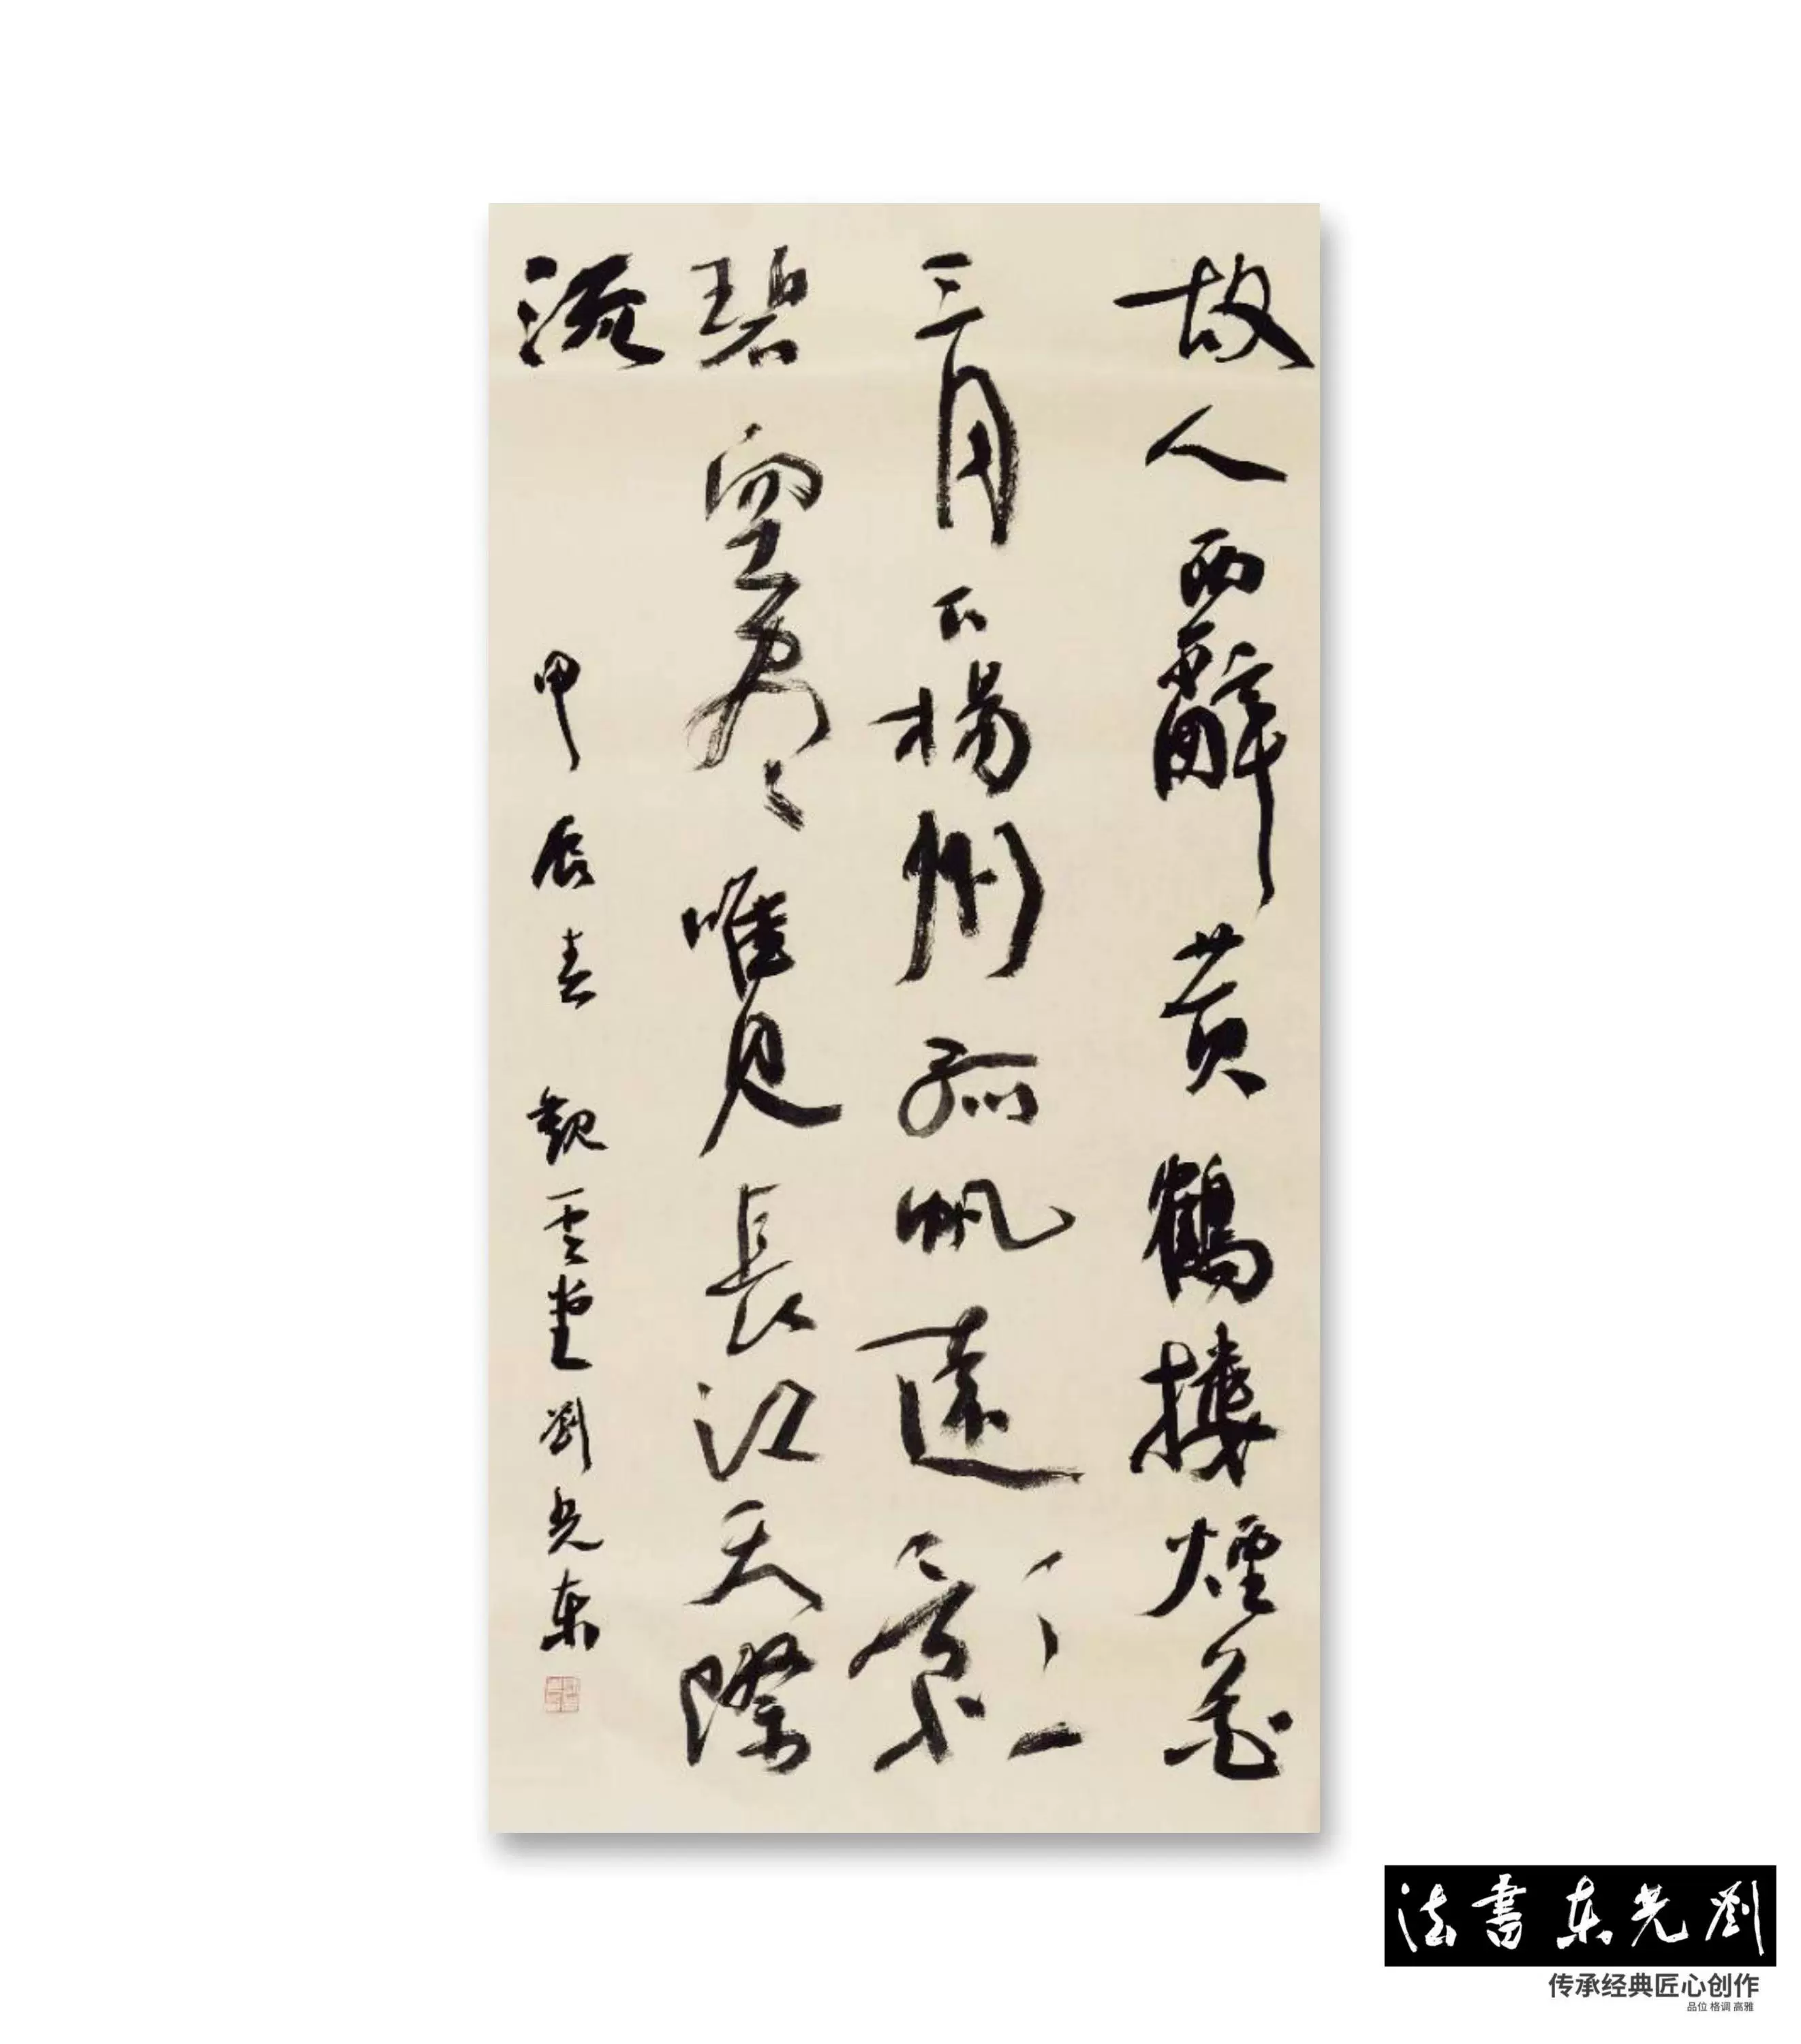 故人西辭黄鶴樓煙花
三月下揚州孤帆遠影
碧空盡唯見長江天際
流
甲辰春 觀雲堂劉光東
劉光东書法
传承经典匠心创作
品位 格调 高雅